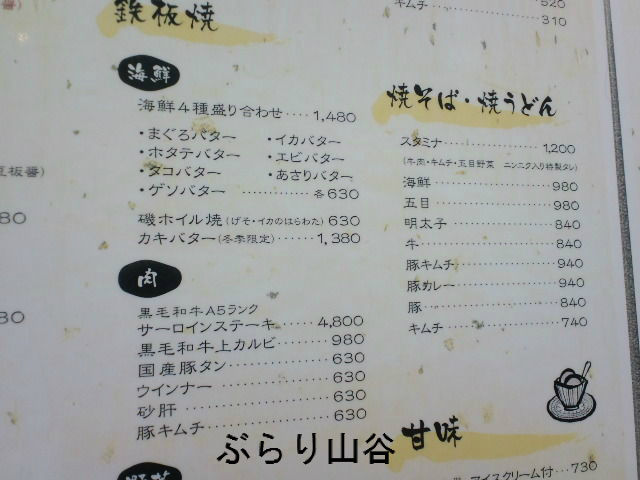 鉄板焼
海鮮
海鮮4種盛り合わせ‥‥1,480
・まぐろバター ・イカバター
・ホタテバター ・エビバター
・タコバター ・あさりバター
・ゲソバター ………… 各630
磯ホイル焼(げそ・イカのはらわた) 630
カキバター(冬季限定)‥‥‥1,380
肉
黒毛和牛A5ランク
サーロインステーキ‥‥‥4,800
黒毛和牛上カルビ‥‥‥980
国産豚タン‥‥‥630
ウインナー‥‥‥630
砂肝‥‥‥630
豚キムチ‥‥‥630
520
キムチ‥‥‥310
焼そば・焼うどん
スタミナ‥‥‥1,200
(牛肉・キムチ・五目野菜 ニンニク入り特製タレ)
海鮮‥‥‥980
五目‥‥‥980
明太子‥‥‥840
牛‥‥‥840
豚キムチ‥‥‥940
豚カレー‥‥‥940
豚‥‥‥840
キムチ‥‥‥740
甘味
アイスクリーム付‥‥730
ぶらり山谷